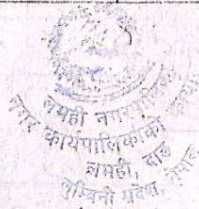 लमही नगरपालिका
नगर कार्यपालिकाको
लमही, दाङ
लुम्बिनी प्रदेश, नेपाल